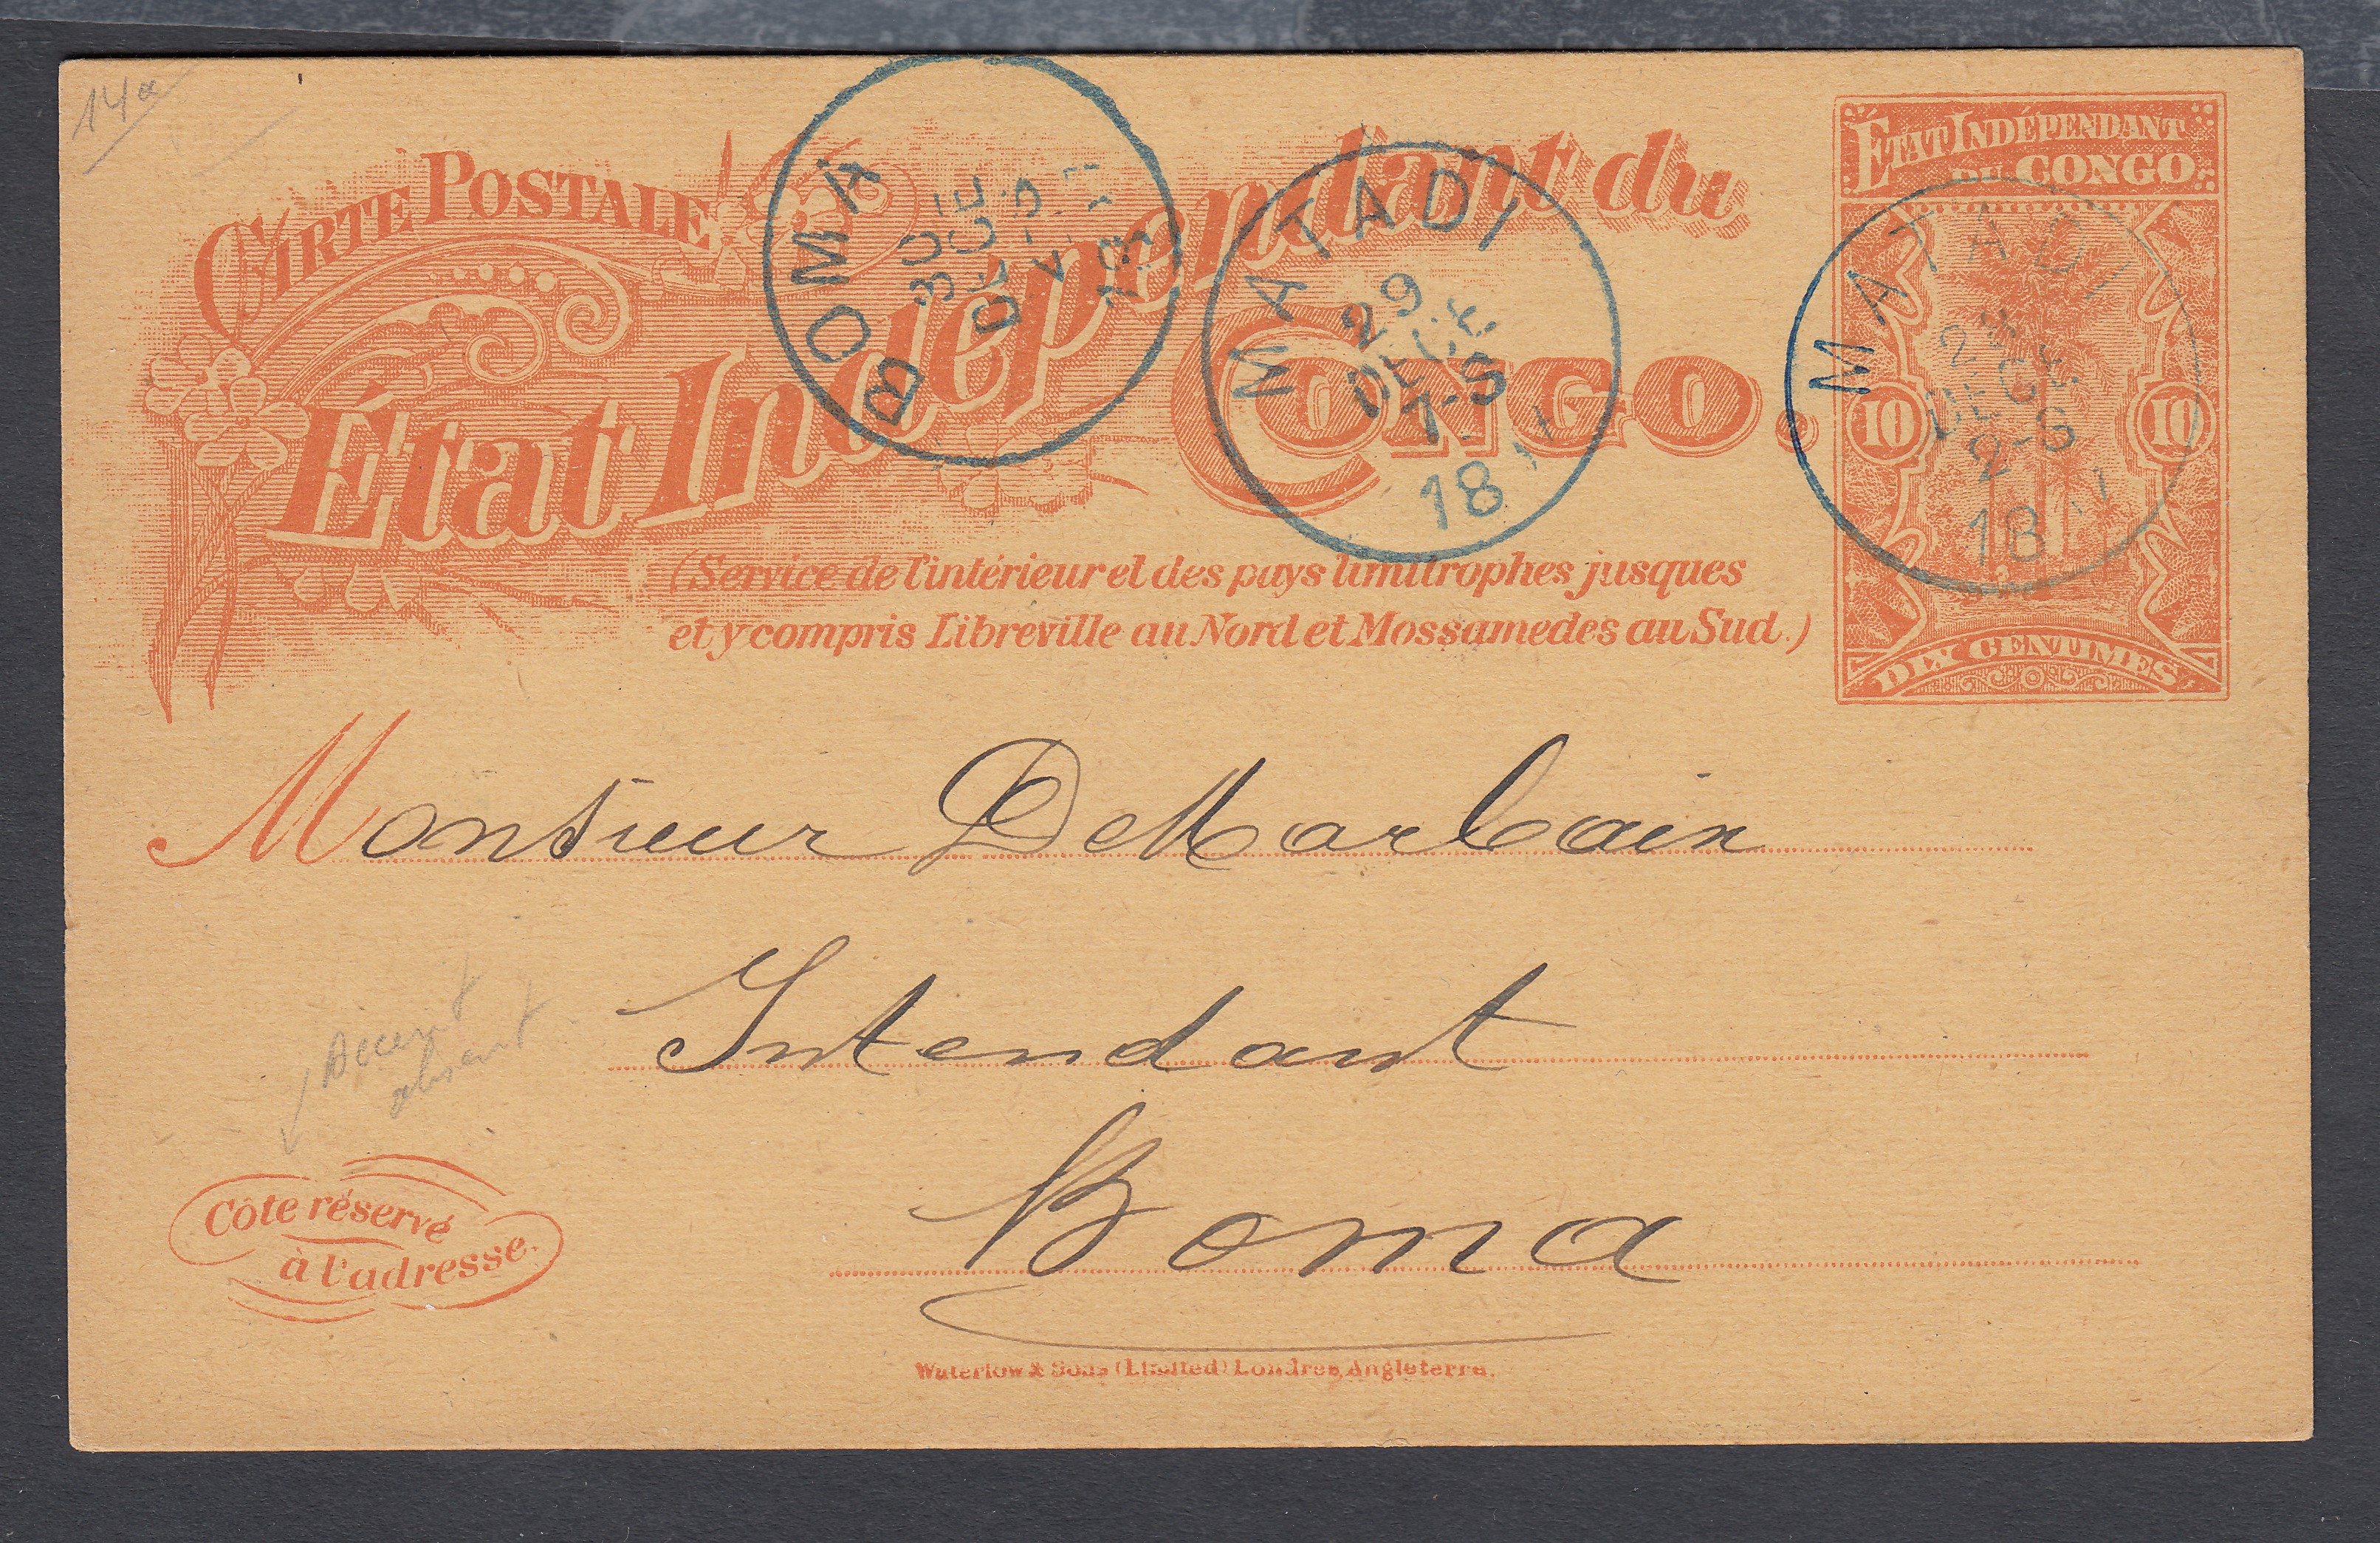 14a
CARTE POSTALE
État Indépendant du
CONGO.
(Service de l'intérieur et des pays limitrophes jusques
et y compris Libreville au Nord et Mossamedes au Sud.)
ETAT INDÉPENDANT
DU CONGO
10 10
DIX CENTIMES
BOMA
30
DECE
MATADI
29
DECE
7-S
18
MATADI
DECE
2-S
18
Monsieur DeMarbaix
Intendant
Boma
Accent
absent
Côte réservé
à l'adresse.
Waterlow & Sons (Limited) Londres, Angleterre.